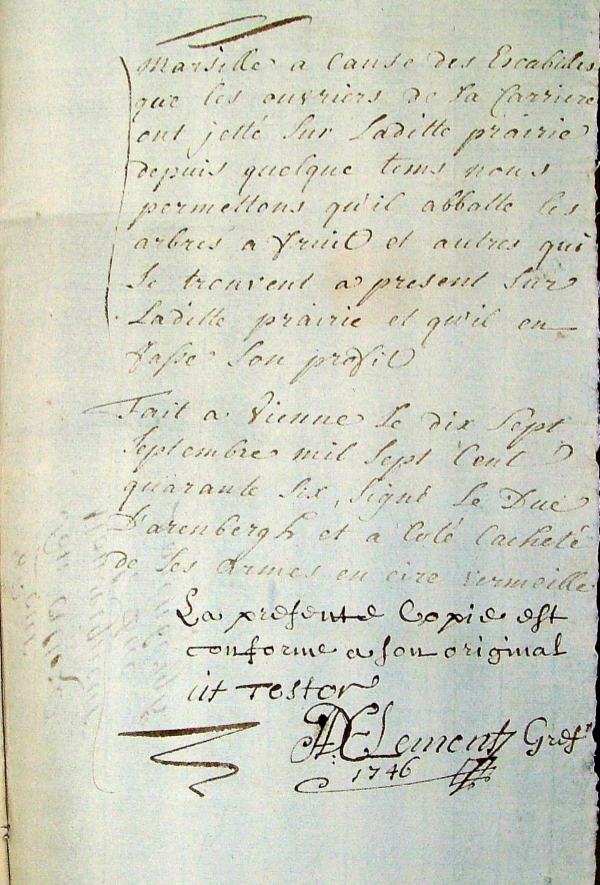 Marsille a Cause des Escabilles
que les ouvriers de la Carriere
ont jetté Sur Laditte prairie
depuis quelque tems nous
permettons qu'il abbatte les
arbres a fruit et autres qui
Se trouvent a present Sur
Laditte prairie et qu'il en
fasse Son profit
Fait a Vienne Le dix Sept
Septembre mil Sept Cent
quarante Six, Signé Le Duc
D'arenbergh et a Coté Cacheté
de Ses Armes en cire Vermeille
La presente Copie est
conforme a son original
ut Testor
AD Clement Gref.r
1746